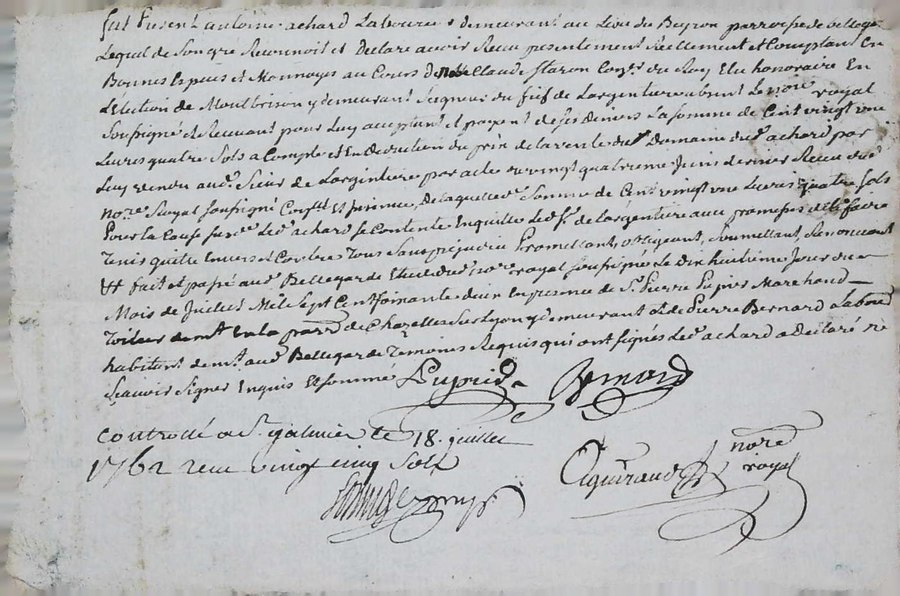 fut Present antoine achard Laboureur demeurant au Lieu du Beyron parroisse de bellega
Lequel de Son gré Reconnoit et Declare avoir Receu presentement Reellement et Comptant En
Bonnes Especes et Monnoyes au Cours De Claude Staron Cons.r du Roy Elu honoraire En
L'Election de Montbrison y demeurant Seigneur du fief de Largentiere absent Le no.re royal
Soussigné et Recevant pour Luy acceptant et payent de ses deniers La somme de Cent vingt une
Livres quatre Sols a Compte et En Deduction du prix de la vente du Domaine dud.t achard par
Luy vendu aud. Sieur de Larginture par acte du vingt quatrieme Juin dernier Receu
No.re Royal soussigné De laquelle Somme de Cent vingt une Livres quatre sols
Pour la Cause Led. achard Se Contente En quitte led. S.r de Largentiere aux promesses de L'en faire
Tenir quitte Envers et Contre Tous Sans prejudice Promettant, obligeant, Soumettant, Renonceant
fait et passé aud. Bellegarde Etude du no.re royal soussigné Le Dix huitieme Jour du
Mois de Juillet Mil Sept Cent Soixante deux En presence de S.r Pierre Marchand
demt. En la parr.e de Chazelles Sur Lyon y demeurant et de Pierre Bernard Labour
habitant demt. aud. Bellegarde Temoins Requis qui ont signés Led. achard a Declaré ne
Scavoir Signer Enquis Et sommé Bernard
Controllé a St. galmier le 18. juillet
1762 receu vingt cinq Sols
no.re
royal